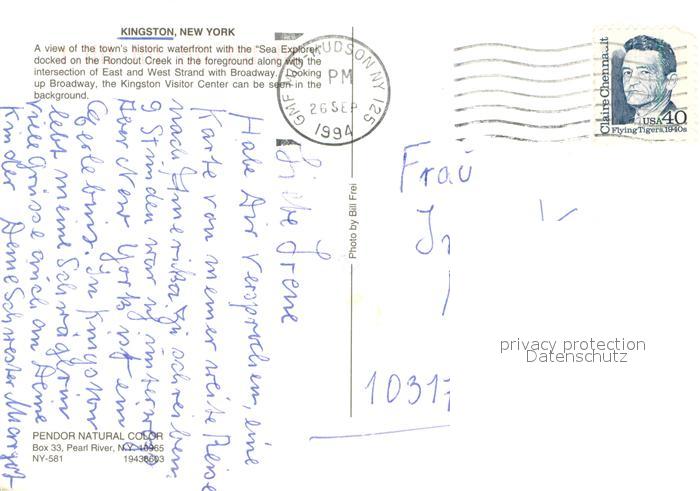 KINGSTON, NEW YORK
A view of the town's historic waterfront with the "Sea Explorer"
docked on the Rondout Creek in the foreground along with the
intersection of East and West Strand with Broadway. Looking
up Broadway, the Kingston Visitor Center can be seen in the
background.
HUDSON NY 125
PM
26 SEP
1994
Claire Chennault
USA 40
Flying Tigers, 1940s
Liebe Irene
Habe Dir versprochen, eine
Karte von meiner weite Reise
nach Amerika zu schreiben.
9 Stunden war ich unterwegs
Aber New York ist ein
Erlebnis. In Kingston
lebt meine Schwägerin
viele Grüsse auch an Deine
Kinder Deine Schwester Margot
Photo by Bill Frei
Frau
1031
privacy protection
Datenschutz
PENDOR NATURAL COLOR
Box 33, Pearl River, N.Y. 10965
NY-581 19438603